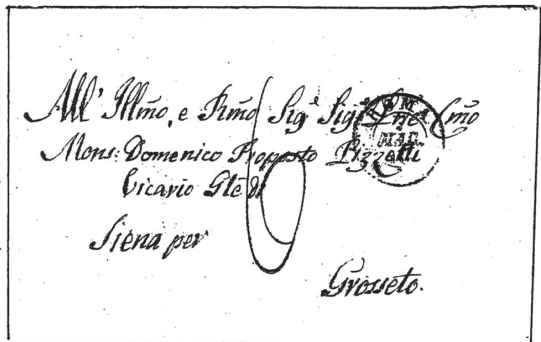 All' Illmo, e Rmo Sigr Sigr
Mons: Domenico Proposto Pizzetti
Vicario Gle di
Siena per
Grosseto.
ROMA
MAG.
6